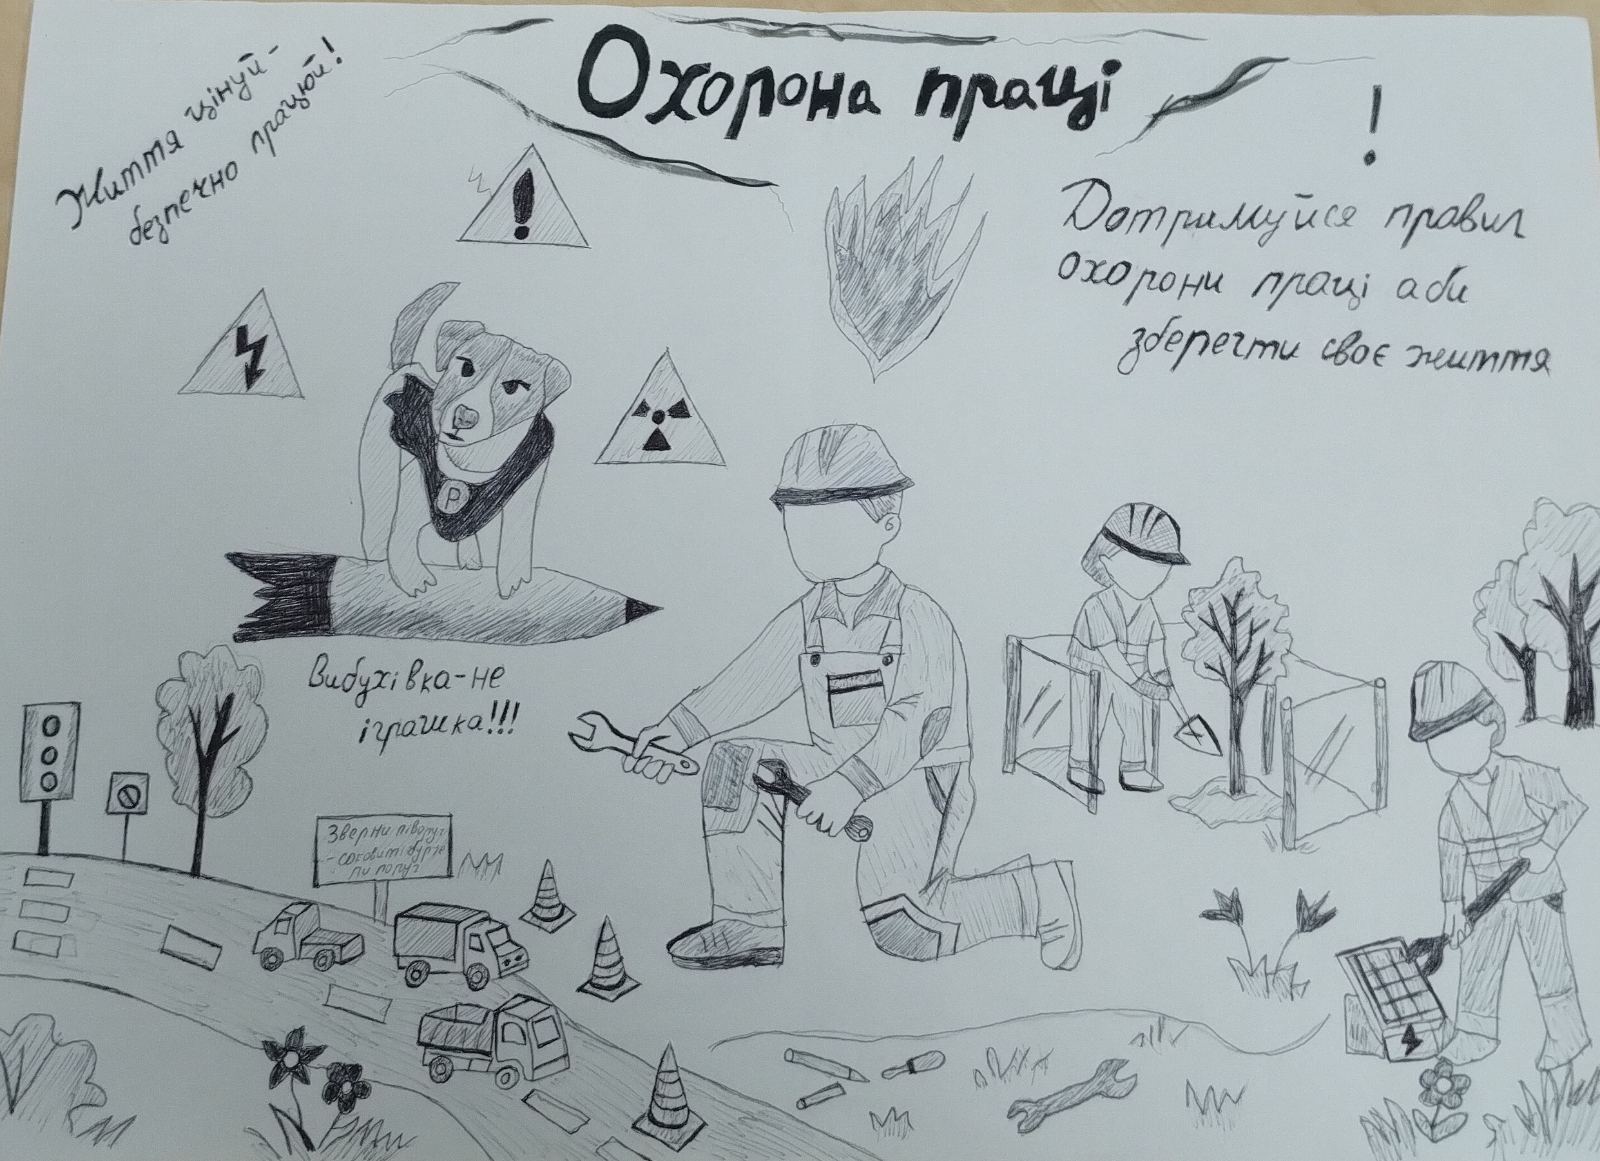 Охорона праці
Життя цінуй -
безпечно працюй!
!
Дотримуйся правил
охорони праці аби
зберегти своє життя
P
Вибухівка - не
іграшка!!!
Зверни